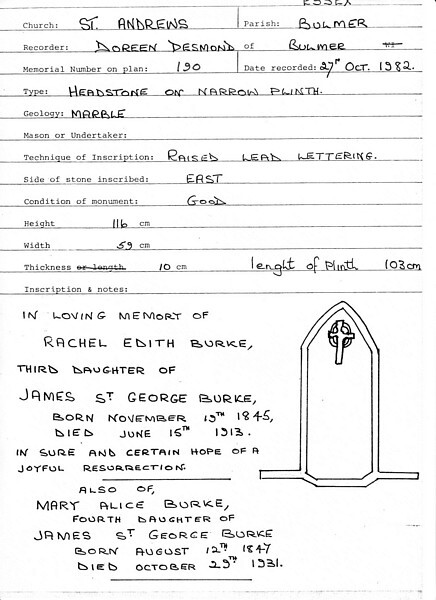 ESSEX
Church: ST. ANDREWS Parish: BULMER
Recorder: DOREEN DESMOND of BULMER
Memorial Number on plan: 190 Date recorded: 27th OCT. 1982.
Type: HEADSTONE ON NARROW PLINTH.
Geology: MARBLE
Mason or Undertaker:
Technique of Inscription: RAISED LEAD LETTERING.
Side of stone inscribed: EAST
Condition of monument: GOOD
Height 116 cm
Width 59 cm
Thickness or length 10 cm lenght of Plinth 103cm
Inscription & notes:
IN LOVING MEMORY OF
RACHEL EDITH BURKE,
THIRD DAUGHTER OF
JAMES ST GEORGE BURKE,
BORN NOVEMBER 19TH 1845,
DIED JUNE 15TH 1913.
IN SURE AND CERTAIN HOPE OF A
JOYFUL RESURRECTION.
ALSO OF,
MARY ALICE BURKE,
FOURTH DAUGHTER OF
JAMES ST GEORGE BURKE
BORN AUGUST 12TH 1847
DIED OCTOBER 29TH 1931.